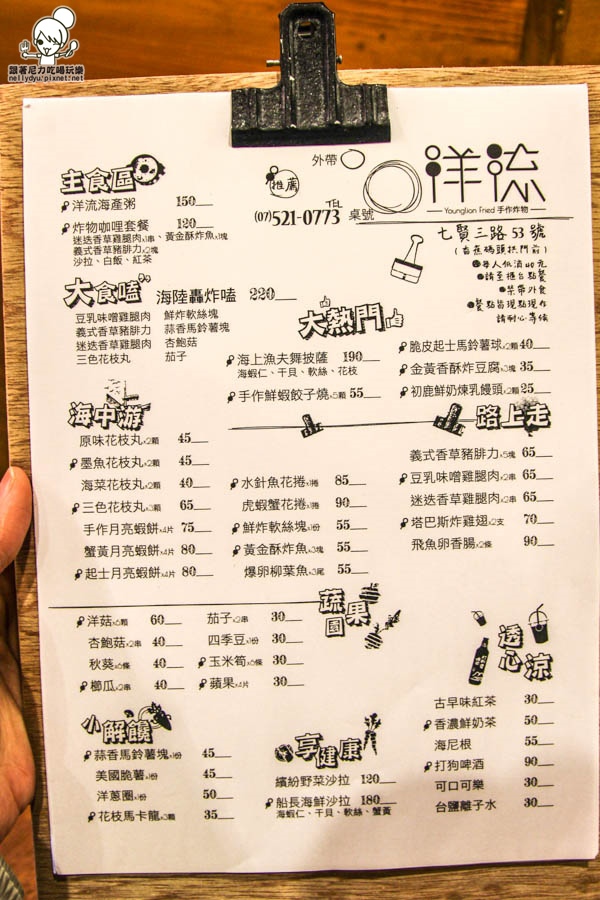 跟著尼力吃喝玩樂
nellydyu.pixnet.net
外帶
推薦
洋流
Younglian Fried 手作炸物
TEL
(07)521-0773 桌號
七賢三路53號
(香蕉碼頭拱門前)
每人低消40元
請至櫃台點餐
禁帶外食
餐點皆現點現作
請耐心等候
主食區
洋流海產粥 150
炸物咖哩套餐 120
迷迭香草雞腿肉x1串、黃金酥炸魚x1塊
義式香草豬腓力x2塊
沙拉、白飯、紅茶
大食嗑
海陸轟炸嗑 220
豆乳味噌雞腿肉 鮮炸軟絲塊
義式香草豬腓力 蒜香馬鈴薯塊
迷迭香草雞腿肉 杏鮑菇
三色花枝丸 茄子
大熱門
海上漁夫舞披薩 190
海蝦仁、干貝、軟絲、花枝
手作鮮蝦餃子燒x5顆 55
脆皮起士馬鈴薯球x2顆 40
金黃香酥炸豆腐x3塊 35
初鹿鮮奶煉乳饅頭x2顆 25
海中游
原味花枝丸x2顆 45
墨魚花枝丸x2顆 45
海菜花枝丸x2顆 40
三色花枝丸x3顆 65
手作月亮蝦餅x4片 75
蟹黃月亮蝦餅x4片 80
起士月亮蝦餅x4片 80
水針魚花捲x1捲 85
虎蝦蟹花捲x1捲 90
鮮炸軟絲塊x1份 55
黃金酥炸魚x3塊 55
爆卵柳葉魚x3尾 55
路上走
義式香草豬腓力x5塊 65
豆乳味噌雞腿肉x2串 65
迷迭香草雞腿肉x2串 65
塔巴斯炸雞翅x2支 70
飛魚卵香腸x2條 90
蔬果園
洋菇x6顆 60
杏鮑菇x2串 40
秋葵x6條 40
櫛瓜x2串 40
茄子x2串 30
四季豆x1份 30
玉米筍x6條 30
蘋果x4片 30
透心涼
古早味紅茶 30
香濃鮮奶茶 50
海尼根 55
打狗啤酒 90
可口可樂 30
台鹽離子水 30
小解饞
蒜香馬鈴薯塊x1份 45
美國脆薯x1份 45
洋蔥圈x1份 50
花枝馬卡龍x3顆 35
享健康
繽紛野菜沙拉 120
船長海鮮沙拉 180
海蝦仁、干貝、軟絲、蟹黃